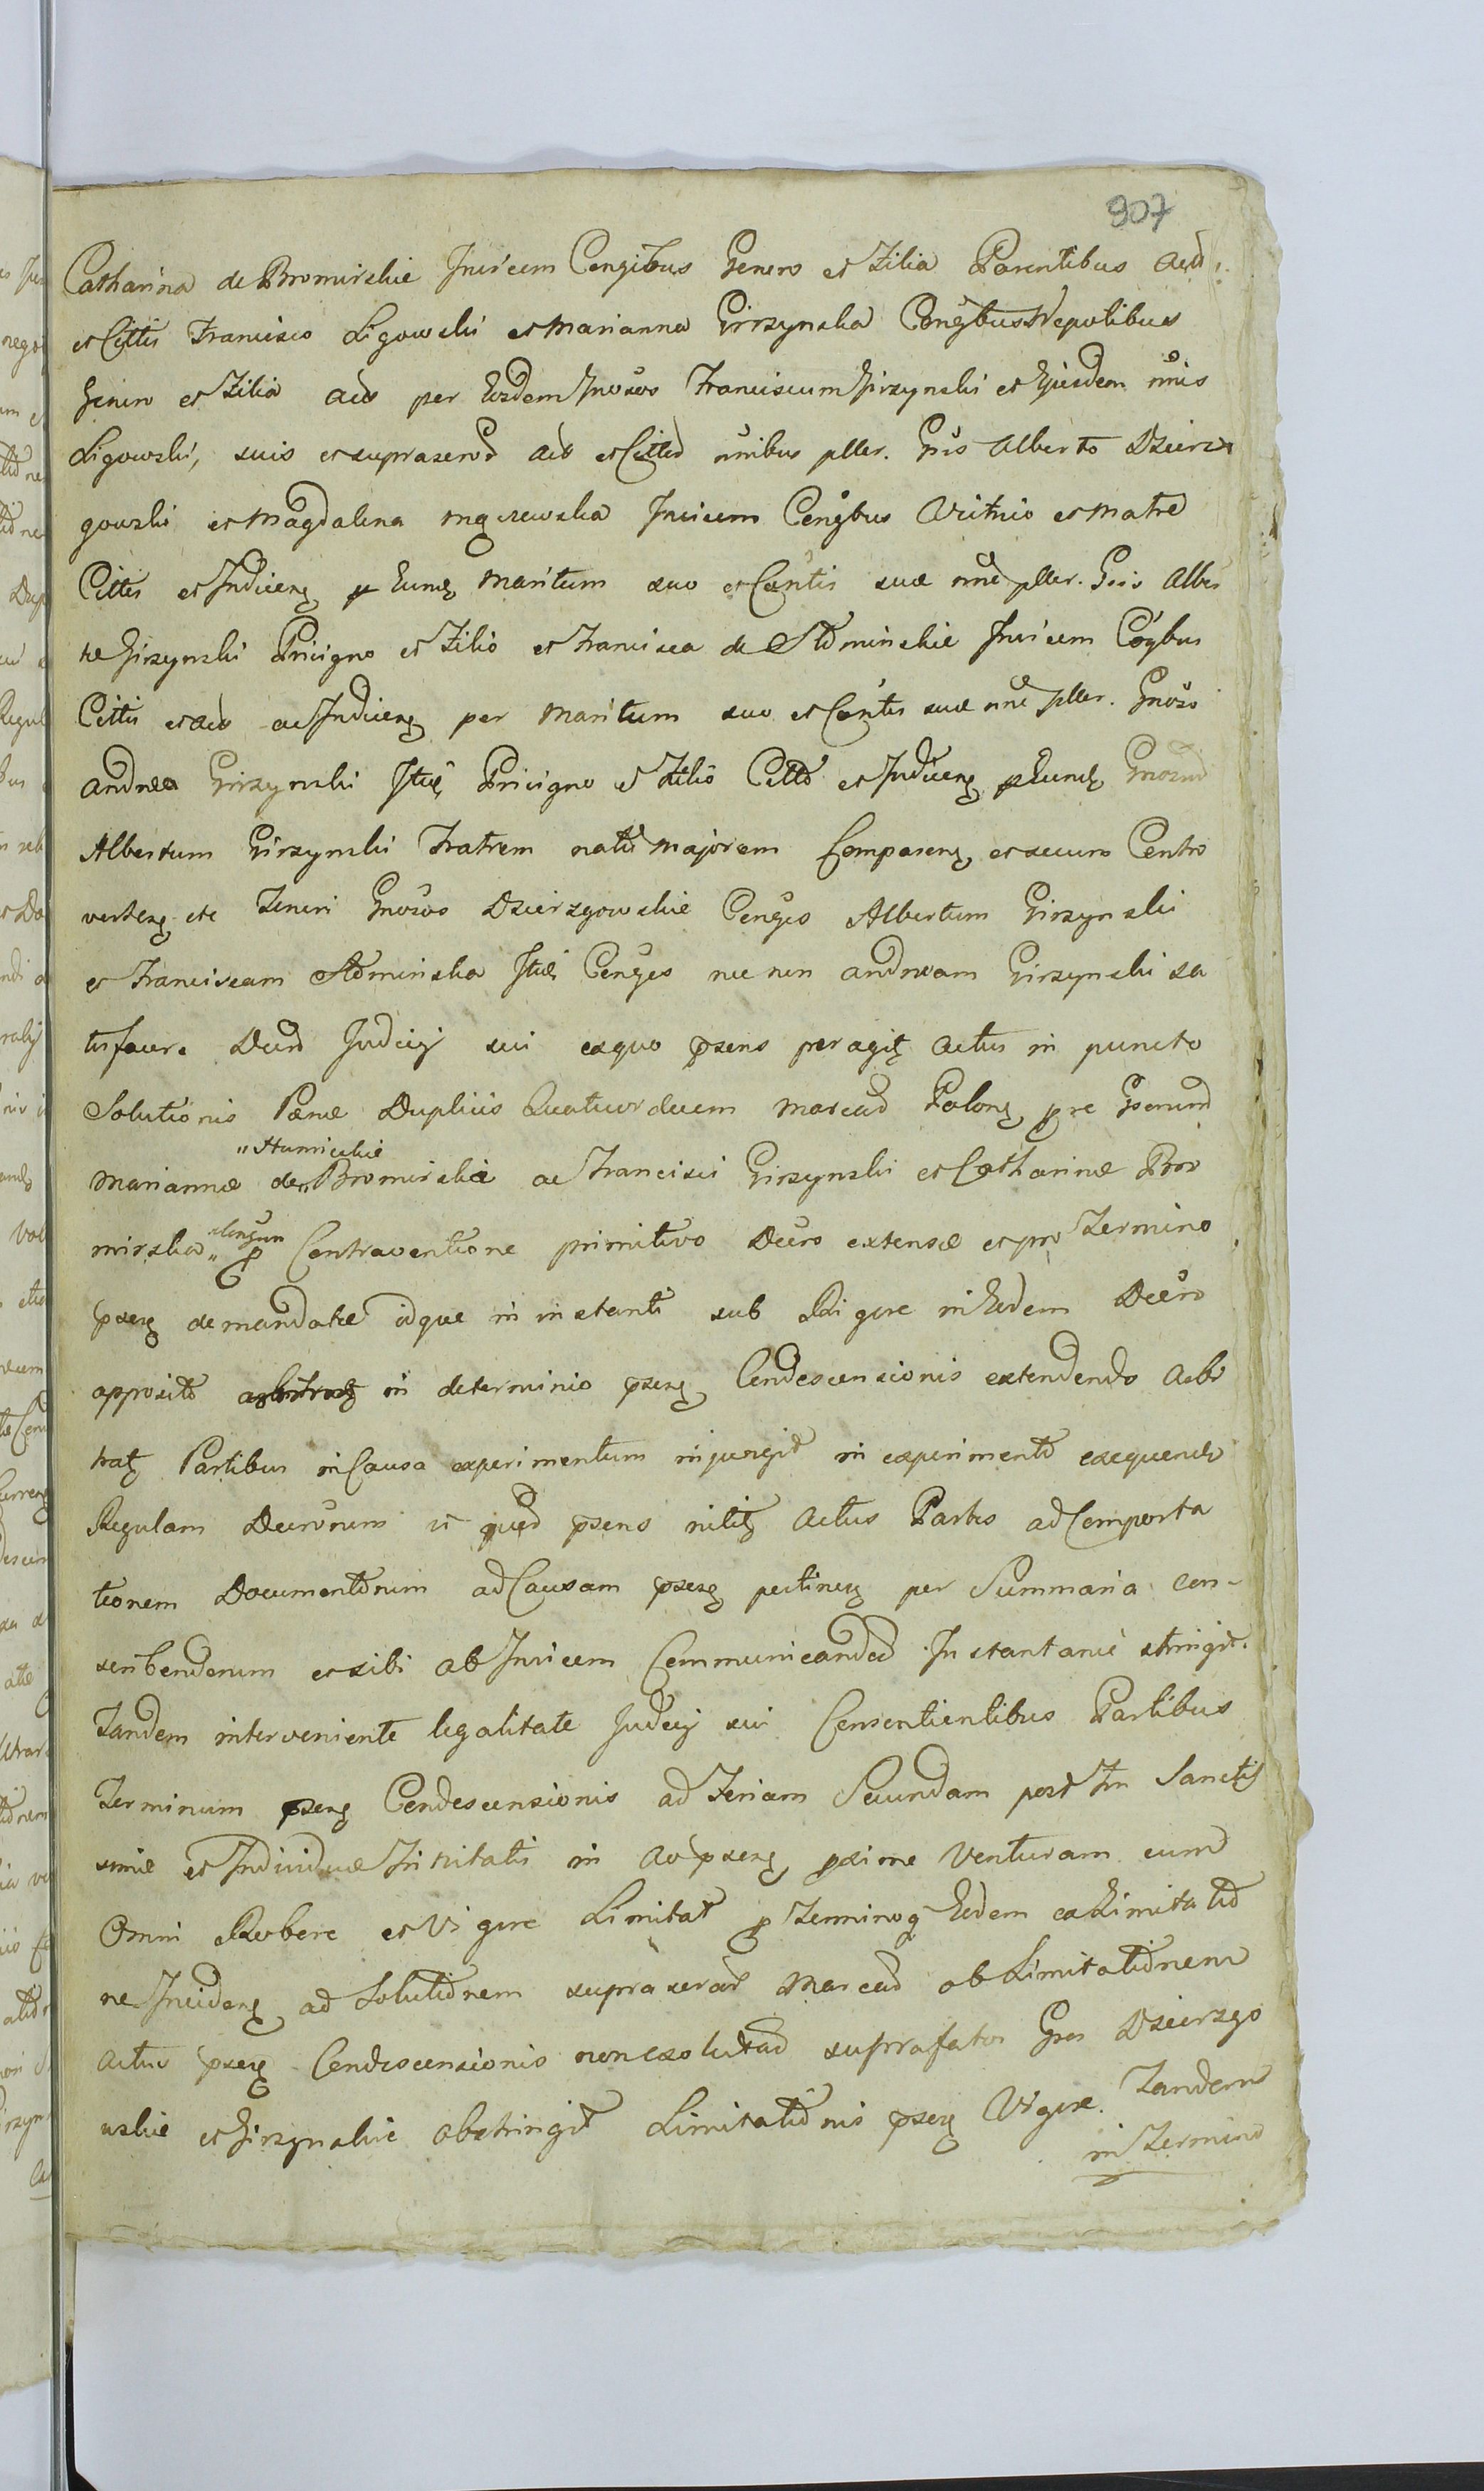 907
Catharina de Bromirskie Invicem Congibus Genero et Filia Parentibus Acts
et Cittis Francisco Ligowski et Marianna Girzynska Congbus Nepotibus
Genero et Filia acts per Eosdem Gnosos Franciscum Girzynski et Ejusdem nnis
Ligowski, suis et supraserod acts et Cittod nnibus pller. Gnis Alberto Dzierz
gowski et Magdalena Invicem Congbus Vitrico et Matre
Cittis et Judicenz p Eund Maritum suo et Contis suae nne pller. Gnso Alber
to Girzynski Privigno et Filio et Francisca de Slominskie Invicem Cogbus
Cittis et acts ac Judicenz per Maritum suo et Contis suae nne pller. Gnoso
Andrea Girzynski Itid Privigno et Filio Citto et Judicenz p Eund Gnosum
Albertum Girzynski Fratrem natu Majorem Comparenz et secum Contro
vertenz etc Teneri Gnosos Dzierzgowskie Conges Albertum Girzynski
et Franciscam Slominska Itid Conges nec non Andream Girzynski sa
tisfacere Decro Judicij sui exquo psens peragitz Actus in puncto
Solutionis Paenae Duplicis Quatuordecem Marcard Polonz pre Gnsarum
Mariannae de „Bromirskie ac Francisci Girzynski et Catharinae Bro
„Humieckie
mirska „ p Contraventione primitivo Decro extensae et pro Termino
„Congum
psenz demandatae idque in instanti sub Rigore in Eodem Decro
apposito in determinio psenz Condescensionis extendendo Arbi
tratz Partibus in Causa experimentum injungit in experimento exequendo
Regulam Decronum it quod psens nititz Actus Partes ad Comporta
tionem Documentorum ad Causam psenz pertinenz per Summaria con-
scribendorum et sibi ab Invicem Communicandod Instantanie stringit.
Tandem interveniente legalitate Judicij sui Consentientibus Partibus
Terminum psenz Condescensionis ad Feriam Secundam post Fm Sanctis
simae et Individuae Trinitatis in Ao psenz pxime Venturam cum
Omni Robore et Vigore Limitat p Terminoq Eodem ex Limitatio
ne Incidenz ad Solutionem supraserard Marcard ob Limitationem
Actus psenz Condescensionis non exolutard suprafatos Gnos Dzierzgo
wskie et Girzynskie Obstringit Limitationis psenz Vigore. Tandem
in Termino